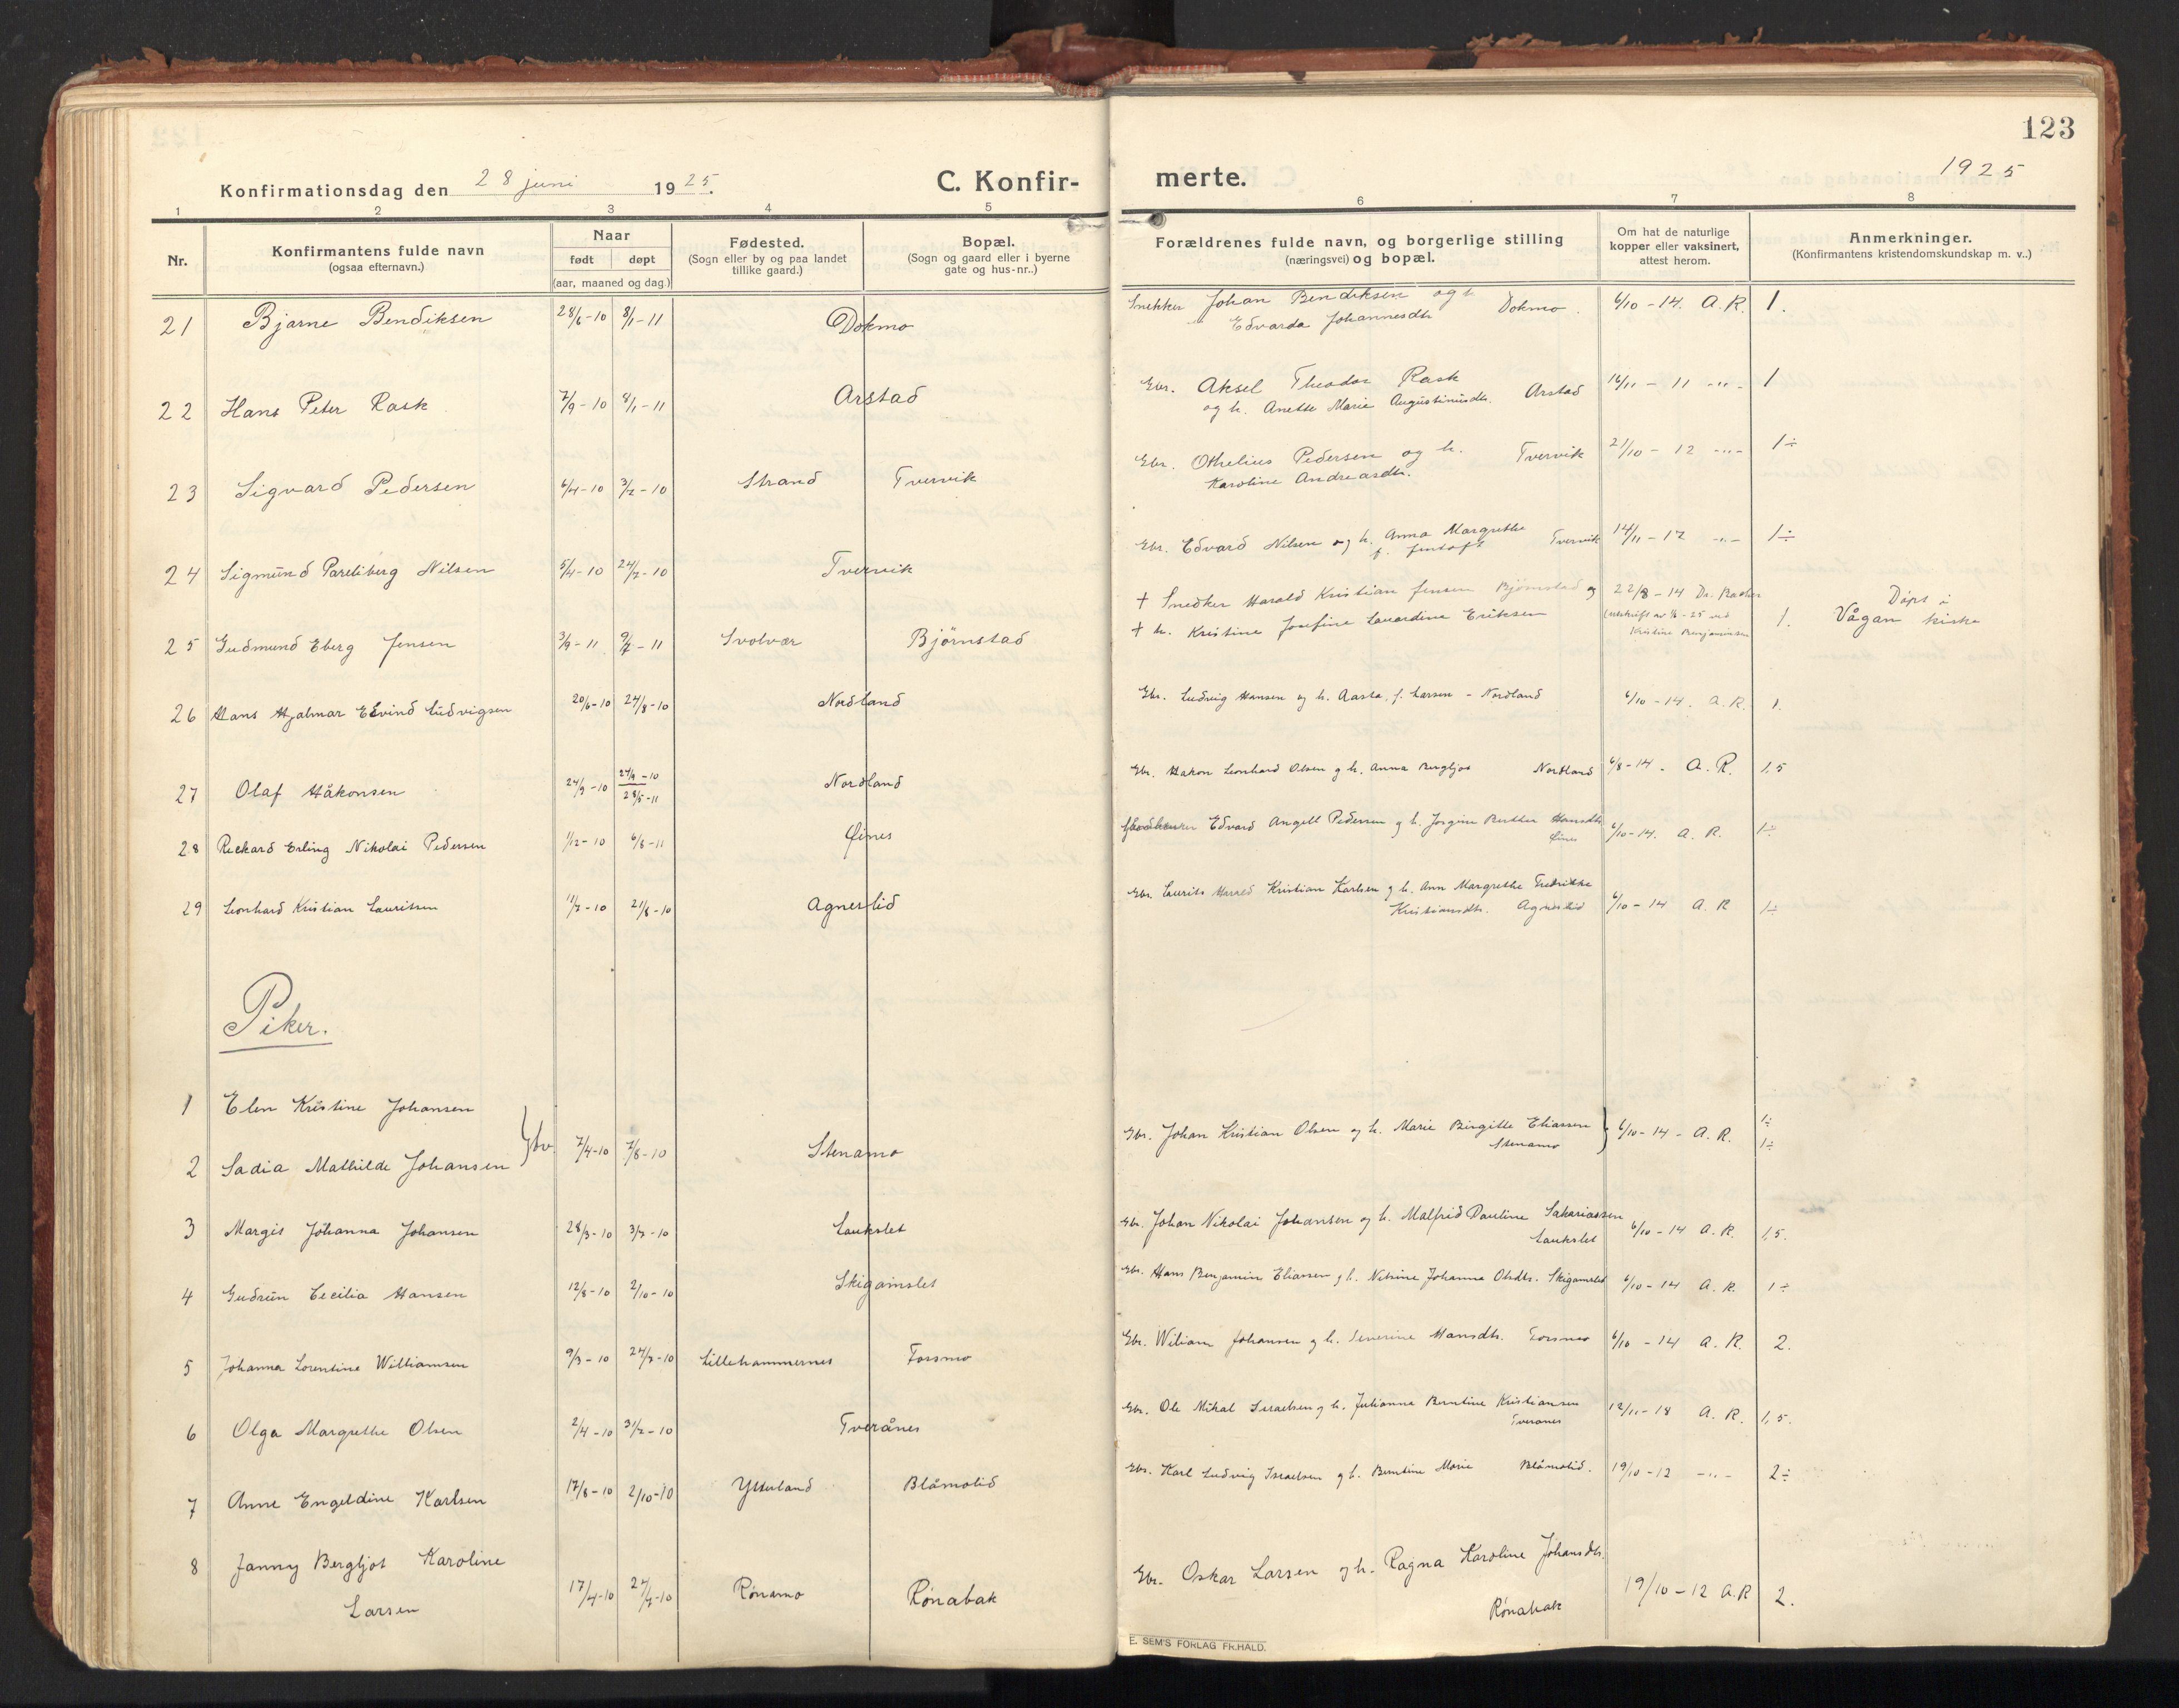 123
1925
Konfirmationsdag den 28 juni 1925.
C. Konfir-
merte.
1 2 3 4 5 6 7 8
Nr.
Konfirmantens fulde navn
(ogsaa efternavn.)
Naar
født døpt
(aar, maaned og dag.)
Fødested.
(Sogn eller by og paa landet
tillike gaard.)
Bopæl.
(Sogn og gaard eller i byerne
gate og hus-nr..)
Forældrenes fulde navn, og borgerlige stilling
(næringsvei) og bopæl.
Om hat de naturlige
kopper eller vaksinert,
attest herom.
Anmerkninger.
(Konfirmantens kristendomskundskap m. v..)
21 Bjarne Bendiksen 28/6-10 8/1-11 Dokmo Snekker Johan Bendiksen og h. Dokmo. 6/10-14. A.R. 1.
Edvarda Johannesdtr
22 Hans Peter Rask 7/9-10 8/1-11 Arstad Gbr. Aksel Theodor Rask Arstad 16/11-11 -"- 1
og h. Anette Marie Augustinusdtr.
23 Sigvard Pedersen 6/4-10 3/7-10 Strand Tvervik Gbr. Othelius Pedersen og h. Tvervik 21/10-12 -"- 1÷
Karoline Andreasdtr.
24 Sigmund Pareliberg Nilsen 5/4-10 24/7-10 Tvervik Gbr. Edvard Nilsen og h. Anna Margrethe Tvervik 14/11-12 -"- 1÷
25 Gudmund Eberg Jensen 3/9-11 9/7-11 Svolvær Bjørnstad † Snedker Harald Kristian Jensen Bjørnstad og 22/8-14 Dr.
† h. Kristine Josefine Lavardine Eriksen (utskrift av -25 ved
Kristine Benjaminsen 1. Døpt i
Vågan kirke
26 Hans Hjalmar Edvind Ludvigsen 20/6-10 24/8-10 Nordland Gbr. Ludvig Hansen og h. Aasta, f. Larsen - Nordland 6/10-14. A.R. 1.
27 Olaf Håkonsen 24/9-10 27/9-10
28/5-11 Nordland Gbr. Hakon Leonhard Olsen g h. Anna Bergljot Nordland 6/8-14. A.R. 1,5
28 Rickard Erling Nikolai Pedersen 1/12-10 6/6-11 Øines Edvard Angell Pedersen g h. Jorgine Berthea Hansdtr. 6/10-14. A.R. 1÷
Øines
29 Leonhard Kristian Lauritsen 11/7-10 21/8-10 Agnerlid Gbr. Laurits Harald Kristian Karlsen g h. Ann Margrethe Fredrikke 6/10-14 A.R 1÷
Kristiansdtr. Agnerlid
Piker.
1 Elen Kristine Johansen
2 Sadia Mathilde Johansen 7/4-10 7/8-10 Stenamo Gbr. Johan Kristian Olsen og h. Marie Birgitte Eliassen 6/10-14 - A.R. 1÷
Stenamo 1÷
3 Margit Johanna Johansen 28/3-10 3/7-10 Laukslet Gbr. Johan Nikolai Johansen og h. Malfrid Pauline Sakariassen 6/10-14 A.R. 1,5.
Laukslet
4 Gudrun Cecilia Hansen 12/8-10 2/10-10 Skigamslet Gbr. Hans Benjamin Eliassen g h. Nelsine Johanna Olsdtr. Skigamslet 6/10-14 A.R. 1÷
5 Johanna Lorentine Williamsen 9/3-10 24/7-10 Lillehammernes Forsmo Gbr. Wiliam Johansen g h. Severine Hansdtr. Forsmo 6/10-14 A.R. 2.
6 Olga Margrethe Olsen 2/4-10 31/7-10 Tverånes Gbr. Ole Mikal Israelsen g h. Julianna Berntine Kristiansen 12/11-18 A.R. 1,5.
Tveranes
7 Anne Engeldine Karlsen 17/8-10 2/10-10 Ytterland Blåmolid Gbr. Karl Ludvig Israelsen g h. Berntine Marie Blåmolid. 19/10-12 -"- 2÷
8 Janny Bergljot Karoline
Larsen 17/4-10 24/7-10 Rønamo Rønabak Gbr. Oskar Larsen og h. Ragna Karoline Johansdtr. 19/10-12 A.R 2.
Rønabak
E. SEM'S FORLAG FR.HALD.